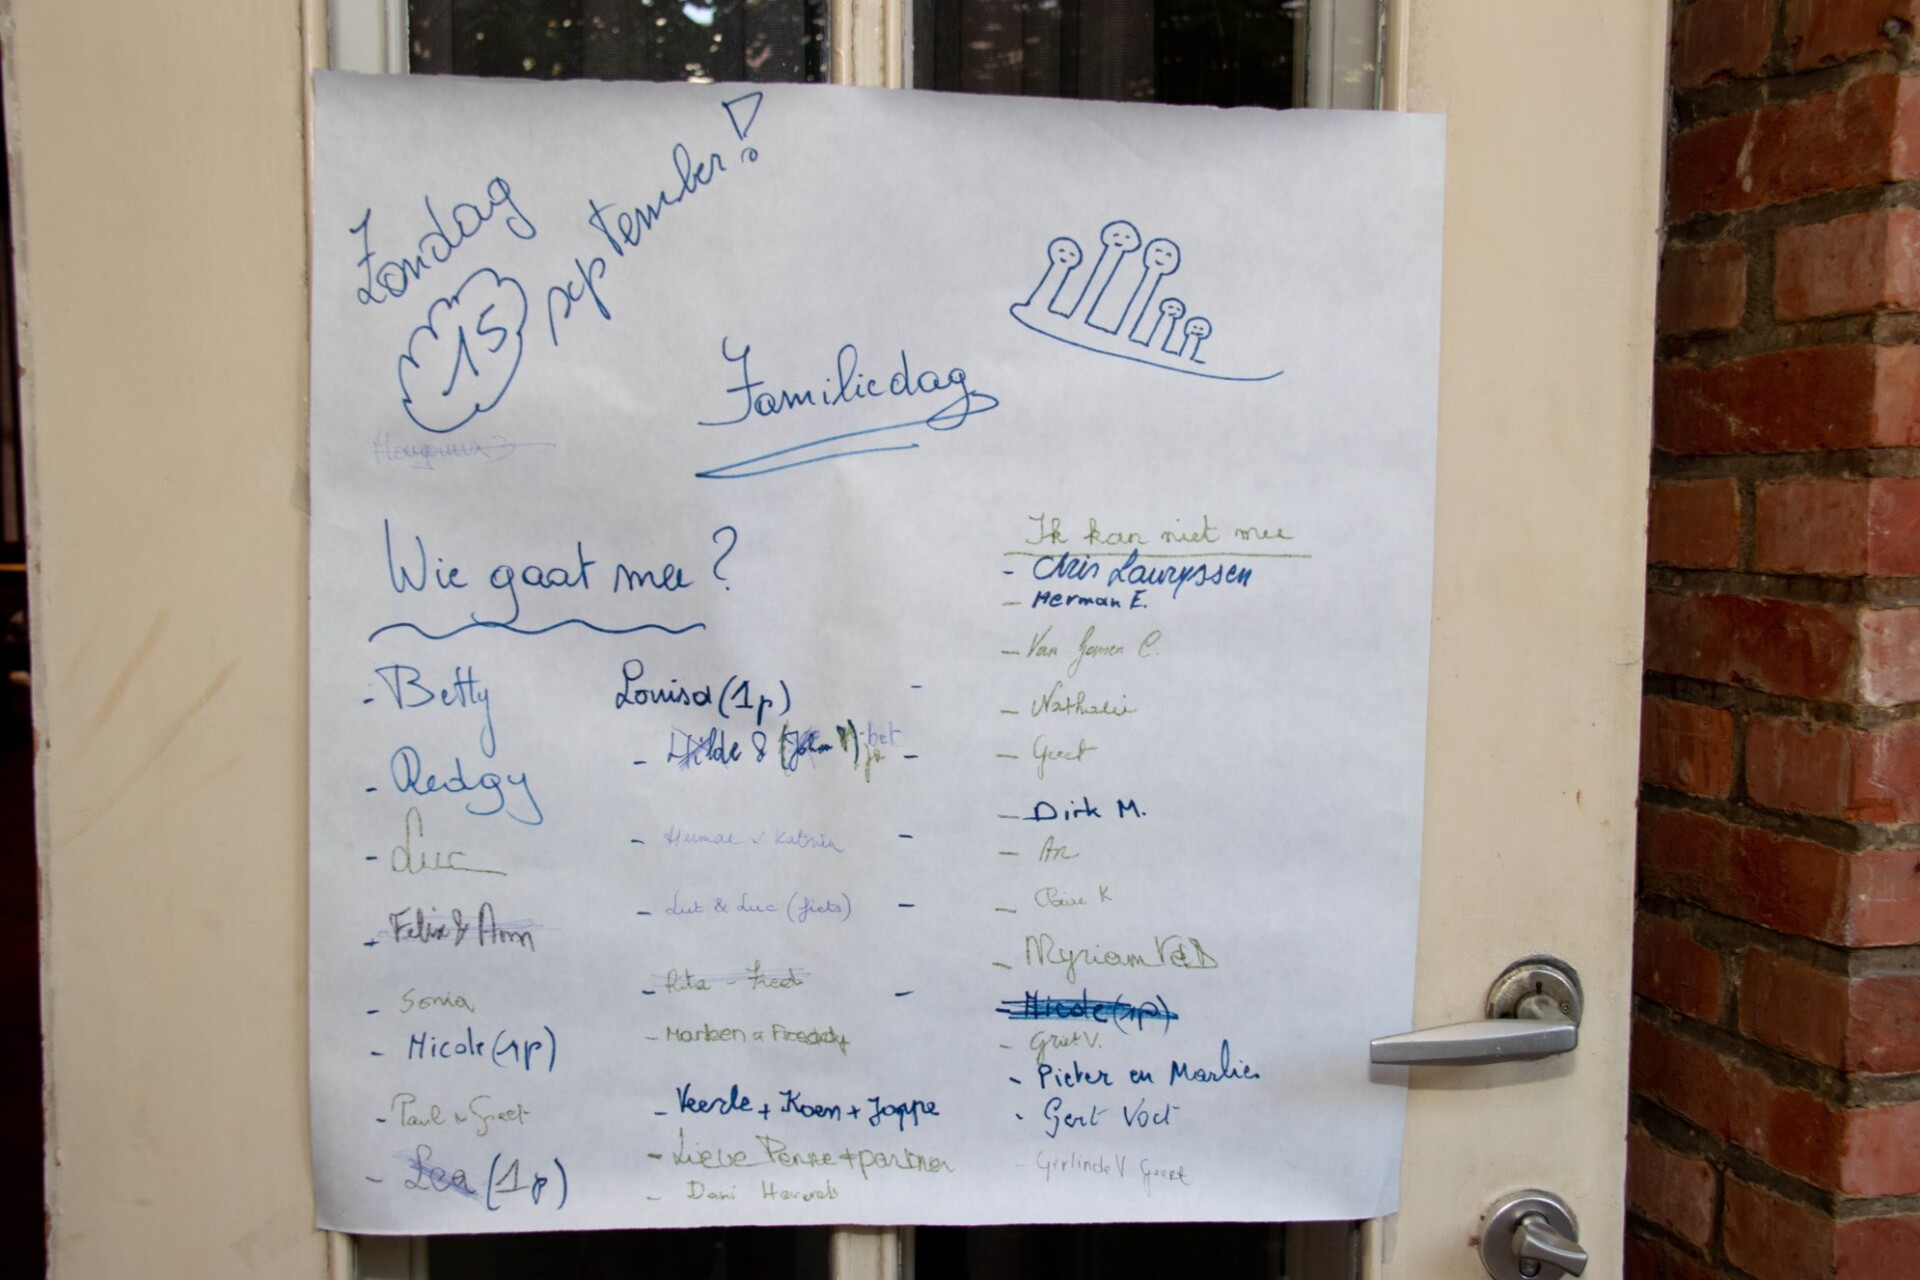 Zondag
15 september!
Familiedag
Wie gaat mee?
- Betty
- Redgy
- Luc
- Felix & Ann
- Sonia
- Nicole (1p)
- Paul & Greet
- Lea (1p)
Louisa (1p)
- Hilde & (John)
- Herman & Katrien
- Lut & Luc (fiets)
- Rita - Fred
- Marleen & Freddy
- Veerle + Koen + Joppe
- Lieve Penne + partner
- Dani
Ik kan niet mee
- Chris Lauryssen
- Herman E.
- Van C.
- Nathalie
- Geert
- Dirk M.
- An
- Claire K
- Myriam VdB
- Nicole (1p)
- Griet V.
- Pieter en Marlies
- Gert Voet
- Gerlinde V Geert